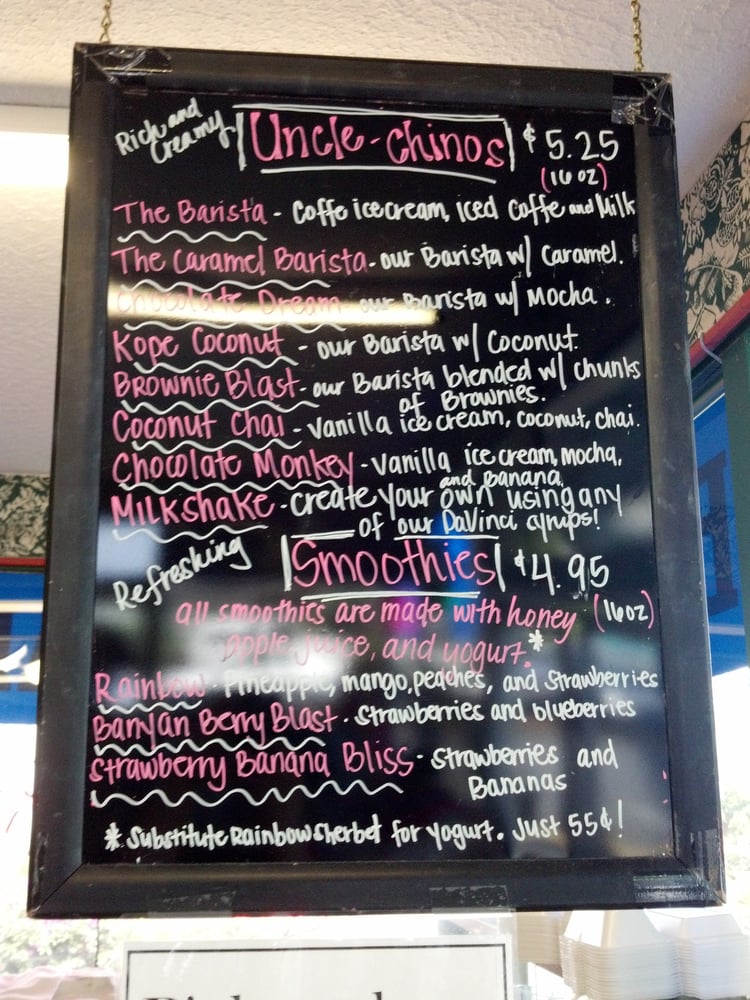 Rich and Creamy
Uncle-Chinos $5.25
(16 oz)
The Barista - Coffe icecream, iced Coffe and Milk
The Caramel Barista - our Barista w/ Caramel.
Chocolate Dream - our Barista w/ Mocha.
Kope Coconut - our Barista w/ Coconut.
Brownie Blast - our Barista blended w/ chunks
of Brownies.
Coconut Chai - vanilla ice cream, coconut, chai.
Chocolate Monkey - vanilla ice cream, mocha,
and banana
Milkshake - create your own using any
of our DaVinci cyrups!
Refreshing
Smoothies $4.95
all smoothies are made with honey (16oz)
apple juice, and yogurt.*
Rainbow - Pineapple, mango, peaches, and strawberries
Banyan Berry Blast - Strawberries and blueberries
Strawberry Banana Bliss - Strawberries and
Bananas
* Substitute Rainbow Sherbet for yogurt. Just 55¢!